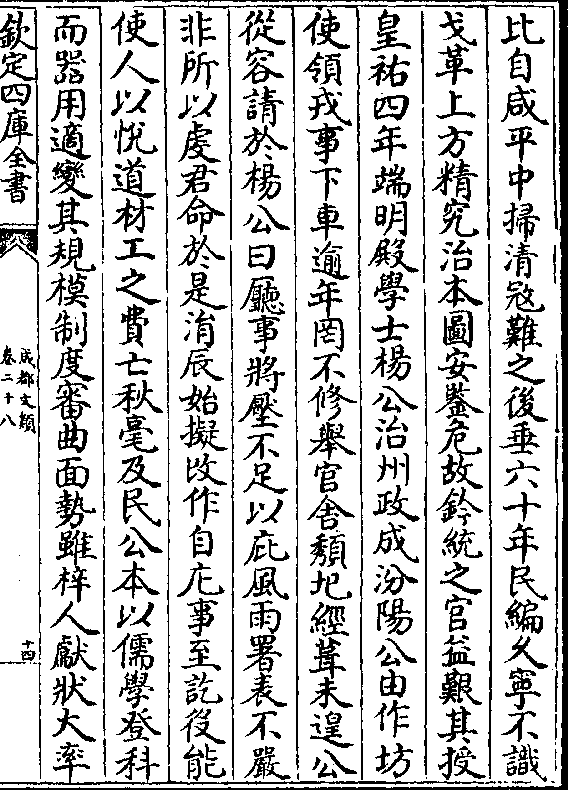 比自咸平中掃清冦難之後垂六十年民編久寧不識
戈革上方精究治本圖安鑒危故鈐統之官益艱其授
皇祐四年端明殿學士楊公治州政成汾陽公由作坊
使領戎事下車逾年罔不修舉官舍頽圯經葺未遑公
從容請於楊公曰廳事將壓不足以庇風雨署表不嚴
非所以䖍君命於是涓辰始擬改作自庀事至訖役能
使人以悅道材工之費亡秋毫及民公本以儒學登科
而器用適變其規模制度審曲面勢雖梓人獻狀大率
欽定四庫全書
成都文類
卷二十八
十四